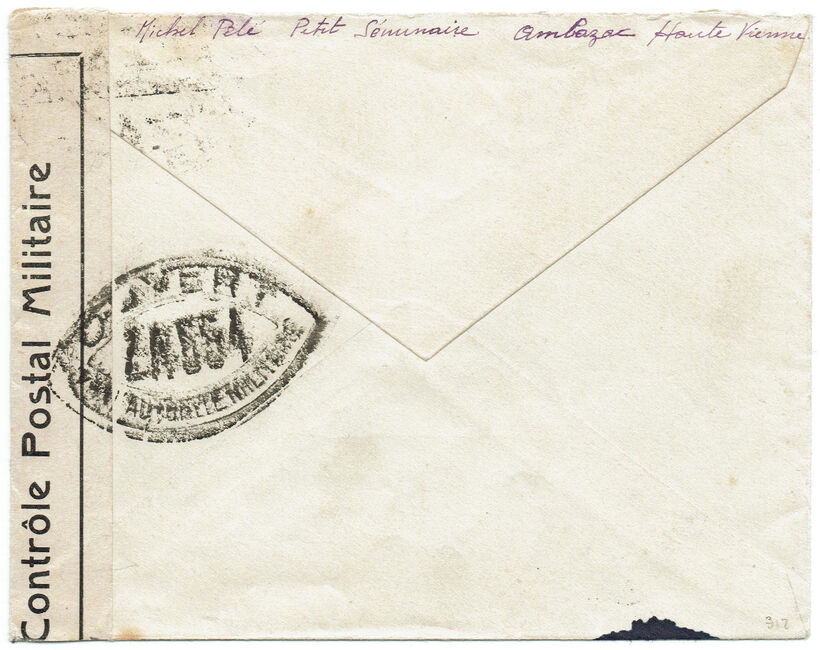 Michel Pelé Petit Séminaire Ambazac Haute Vienne
Contrôle Postal Militaire
OUVERT
PAR AUTORITÉ MILITAIRE
312